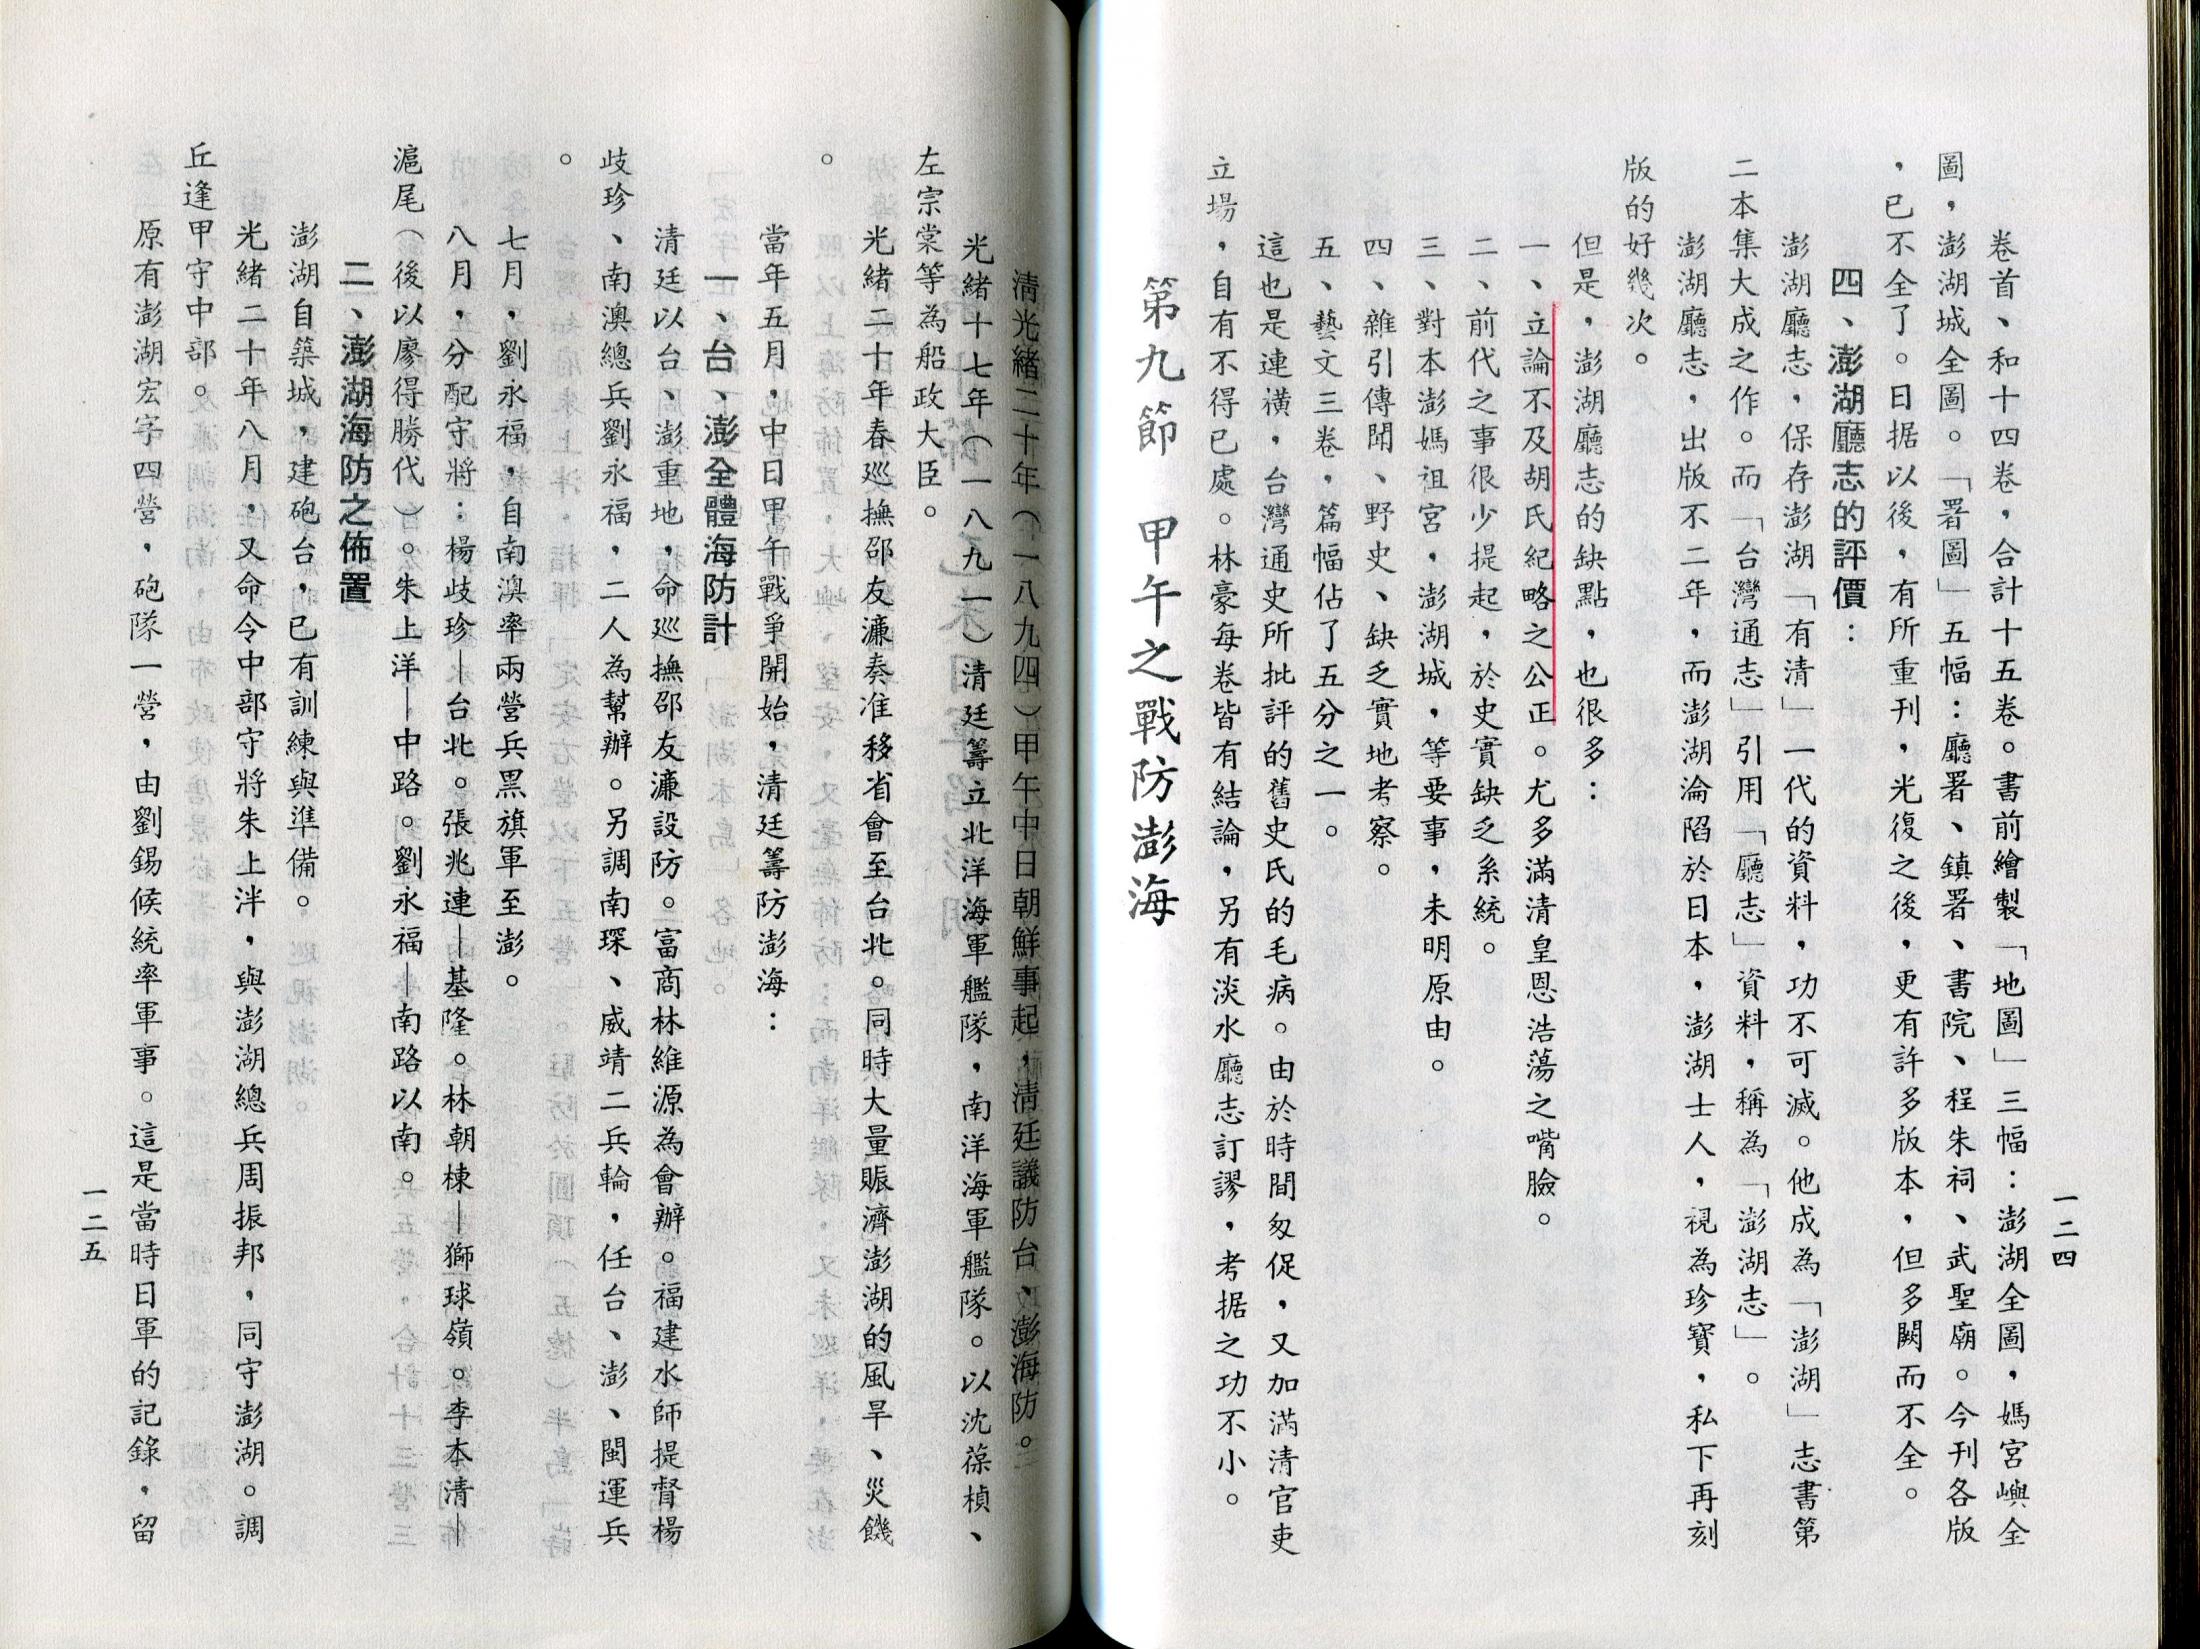 一二四
卷首、和十四卷，合計十五卷。書前繪製「地圖」三幅：澎湖全圖，媽宮嶼全
圖，澎湖城全圖。「署圖」五幅：廳署、鎮署、書院、程朱祠、武聖廟。今刊各版
，已不全了。日据以後，有所重刊，光復之後，更有許多版本，但多闕而不全。
四、澎湖廳志的評價：
澎湖廳志，保存澎湖「有清」一代的資料，功不可滅。他成為「澎湖」志書第
二本集大成之作。而「台灣通志」引用「廳志」資料，稱為「澎湖志」。
澎湖廳志，出版不二年，而澎湖淪陷於日本，澎湖士人，視為珍寶，私下再刻
版的好幾次。
但是，澎湖廳志的缺點，也很多：
一、立論不及胡氏紀略之公正。尤多滿清皇恩浩蕩之嘴臉。
二、前代之事很少提起，於史實缺乏系統。
三、對本澎媽祖宮，澎湖城，等要事，未明原由。
四、雜引傳聞、野史、缺乏實地考察。
五、藝文三卷，篇幅佔了五分之一。
這也是連橫，台灣通史所批評的舊史氏的毛病。由於時間匆促，又加滿清官吏
立場，自有不得已處。林豪每卷皆有結論，另有淡水廳志訂謬，考据之功不小。
第九節　甲午之戰防澎海
清光緒二十年（一八九四）甲午中日朝鮮事起，清廷議防台、澎海防。
光緒十七年（一八九一）清廷籌立北洋海軍艦隊，南洋海軍艦隊。以沈葆楨、
左宗棠等為船政大臣。
光緒二十年春巡撫邵友濂奏准移省會至台北。同時大量賑濟澎湖的風旱、災饑
。
當年五月，中日甲午戰爭開始，清廷籌防澎海：
一、台、澎全體海防計
清廷以台、澎重地，命巡撫邵友濂設防。富商林維源為會辦。福建水師提督楊
歧珍、南澳總兵劉永福，二人為幫辦。另調南琛、威靖二兵輪，任台、澎、閩運兵
。
七月，劉永福，自南澳率兩營兵黑旗軍至澎。
八月，分配守將：楊歧珍—台北。張兆連—基隆。林朝棟—獅球嶺。李本清—
滬尾（後以廖得勝代）。朱上洋—中路。劉永福—南路以南。
二、澎湖海防之佈置
澎湖自築城，建砲台，已有訓練與準備。
光緒二十年八月，又命令中部守將朱上泮，與澎湖總兵周振邦，同守澎湖。調
丘逢甲守中部。
原有澎湖宏字四營，砲隊一營，由劉錫候統率軍事。這是當時日軍的記錄，留
一二五